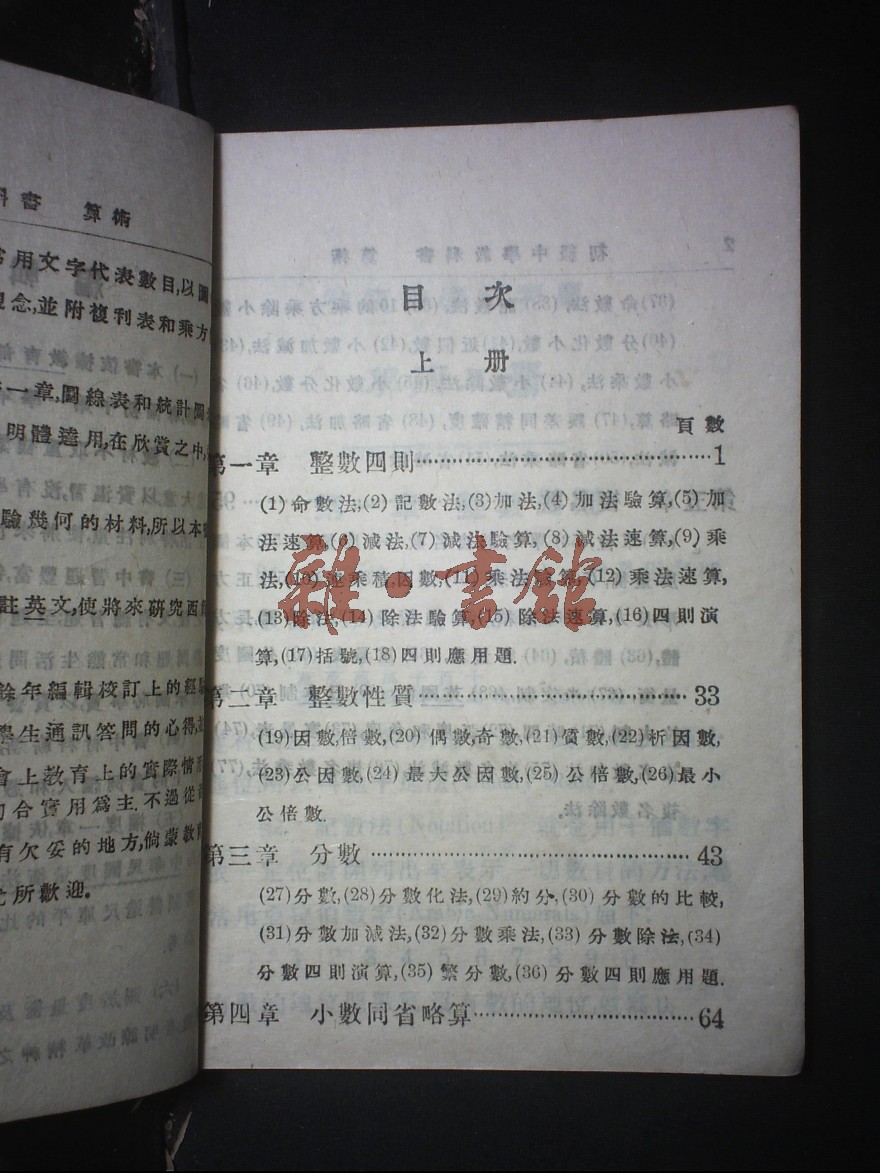 算術
常用文字代表數目,以圖
念,並附複利表和乘方
一章,圖線表和統計圖
明體達用,在欣賞之中,
驗幾何的材料,所以本
註英文,使將來研究西
餘年編輯校訂上的經
學生通訊答問的心得,
會上教育上的實際情
合實用爲主.不過從
有欠妥的地方,倘蒙教
所歡迎。
目次
上册
頁數
第一章 整數四則……1
(1)命數法,(2)記數法,(3)加法,(4)加法驗算,(5)加
法速算,(6)減法,(7)減法驗算,(8)減法速算,(9)乘
法,(10)連乘積,因數,(11)乘法驗算,(12)乘法速算,
(13)除法,(14)除法驗算,(15)除法速算,(16)四則演
算,(17)括號,(18)四則應用題.
第二章 整數性質……33
(19)因數,倍數,(20)偶數,奇數,(21)質數,(22)析因數,
(23)公因數,(24)最大公因數,(25)公倍數,(26)最小
公倍數.
第三章 分數……43
(27)分數,(28)分數化法,(29)約分,(30)分數的比較,
(31)分數加減法,(32)分數乘法,(33)分數除法,(34)
分數四則演算,(35)繁分數,(36)分數四則應用題.
第四章 小數同省略算……64
雜·書館